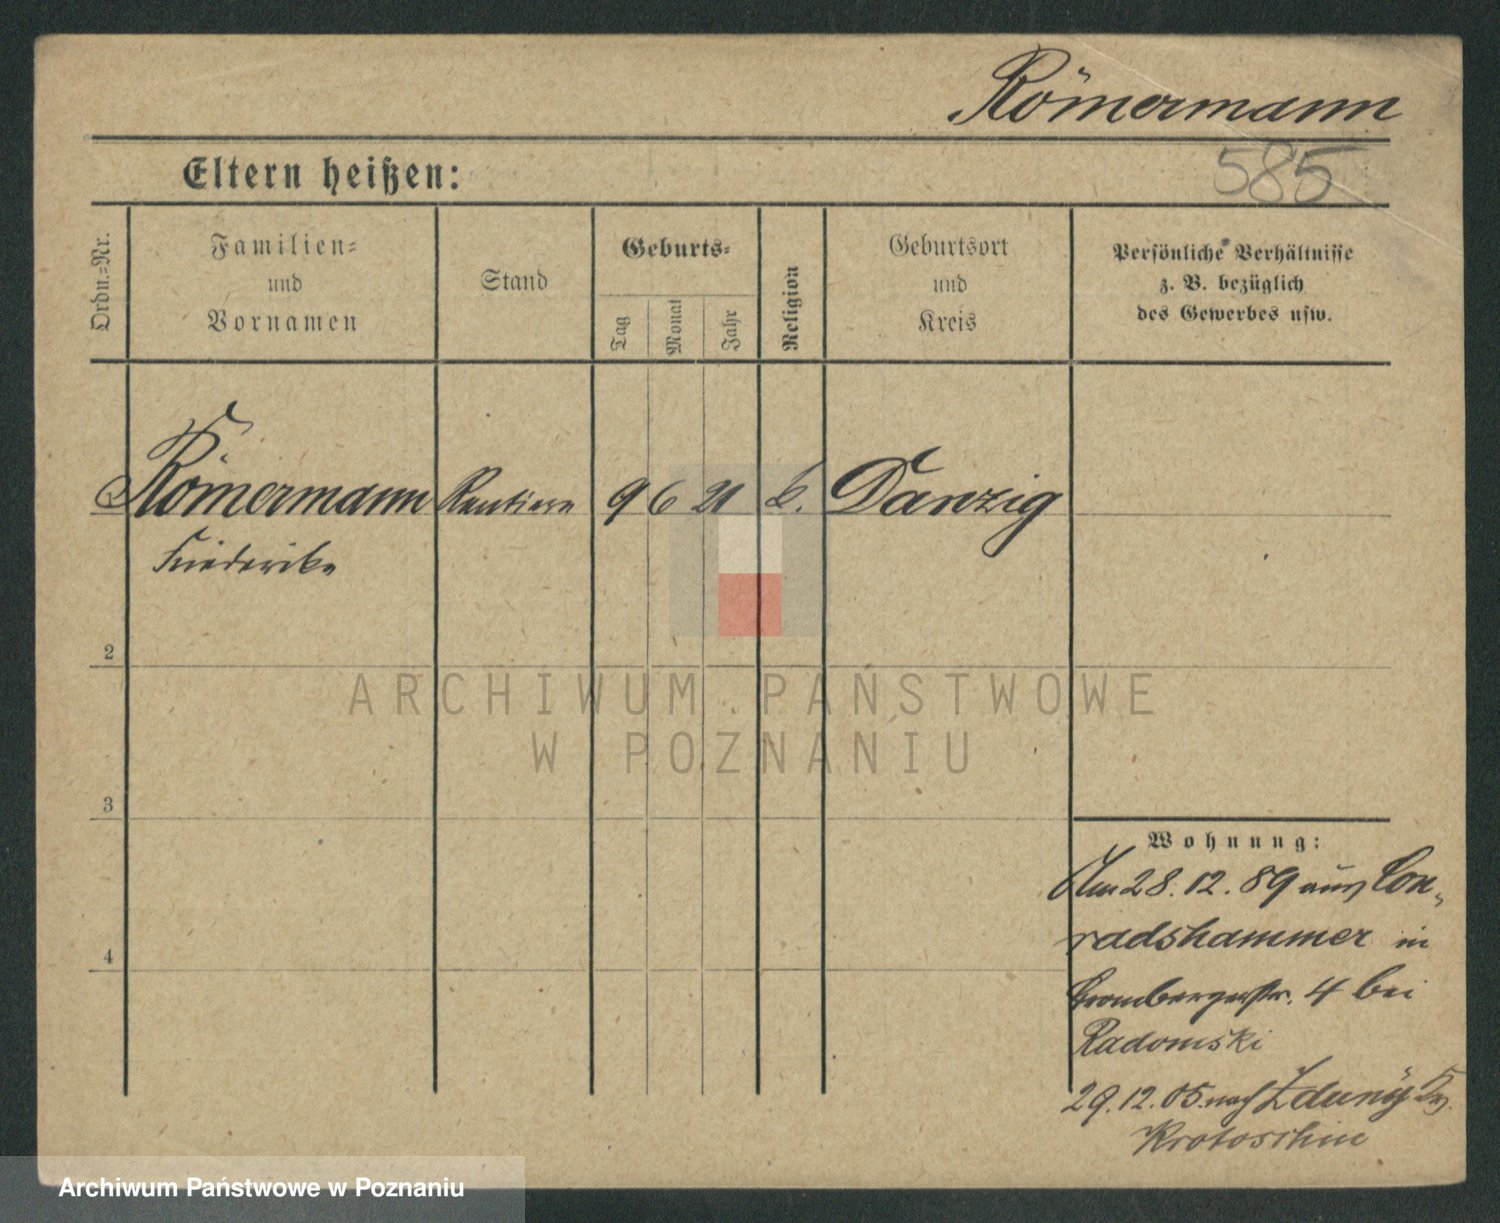 Römermann
585
Eltern heißen:
Ordn.=Nr.
Familien=
und
Vornamen
Stand
Geburts=
Tag
Monat
Jahr
Religion
Geburtsort
und
Kreis
Persönliche Verhältnisse
z. B. bezüglich
des Gewerbes usw.
Römermann Rentiere 9 6 21 Danzig
Friederike
2
ARCHIWUM PAŃSTWOWE
W POZNANIU
3
Wohnung:
Am 28.12.89 aus Con-
radshammer in
Brombergerstr. 4 bei
Radomski
29.12.05 nach Zduny Kr.
Krotoschin
4
Archiwum Państwowe w Poznaniu